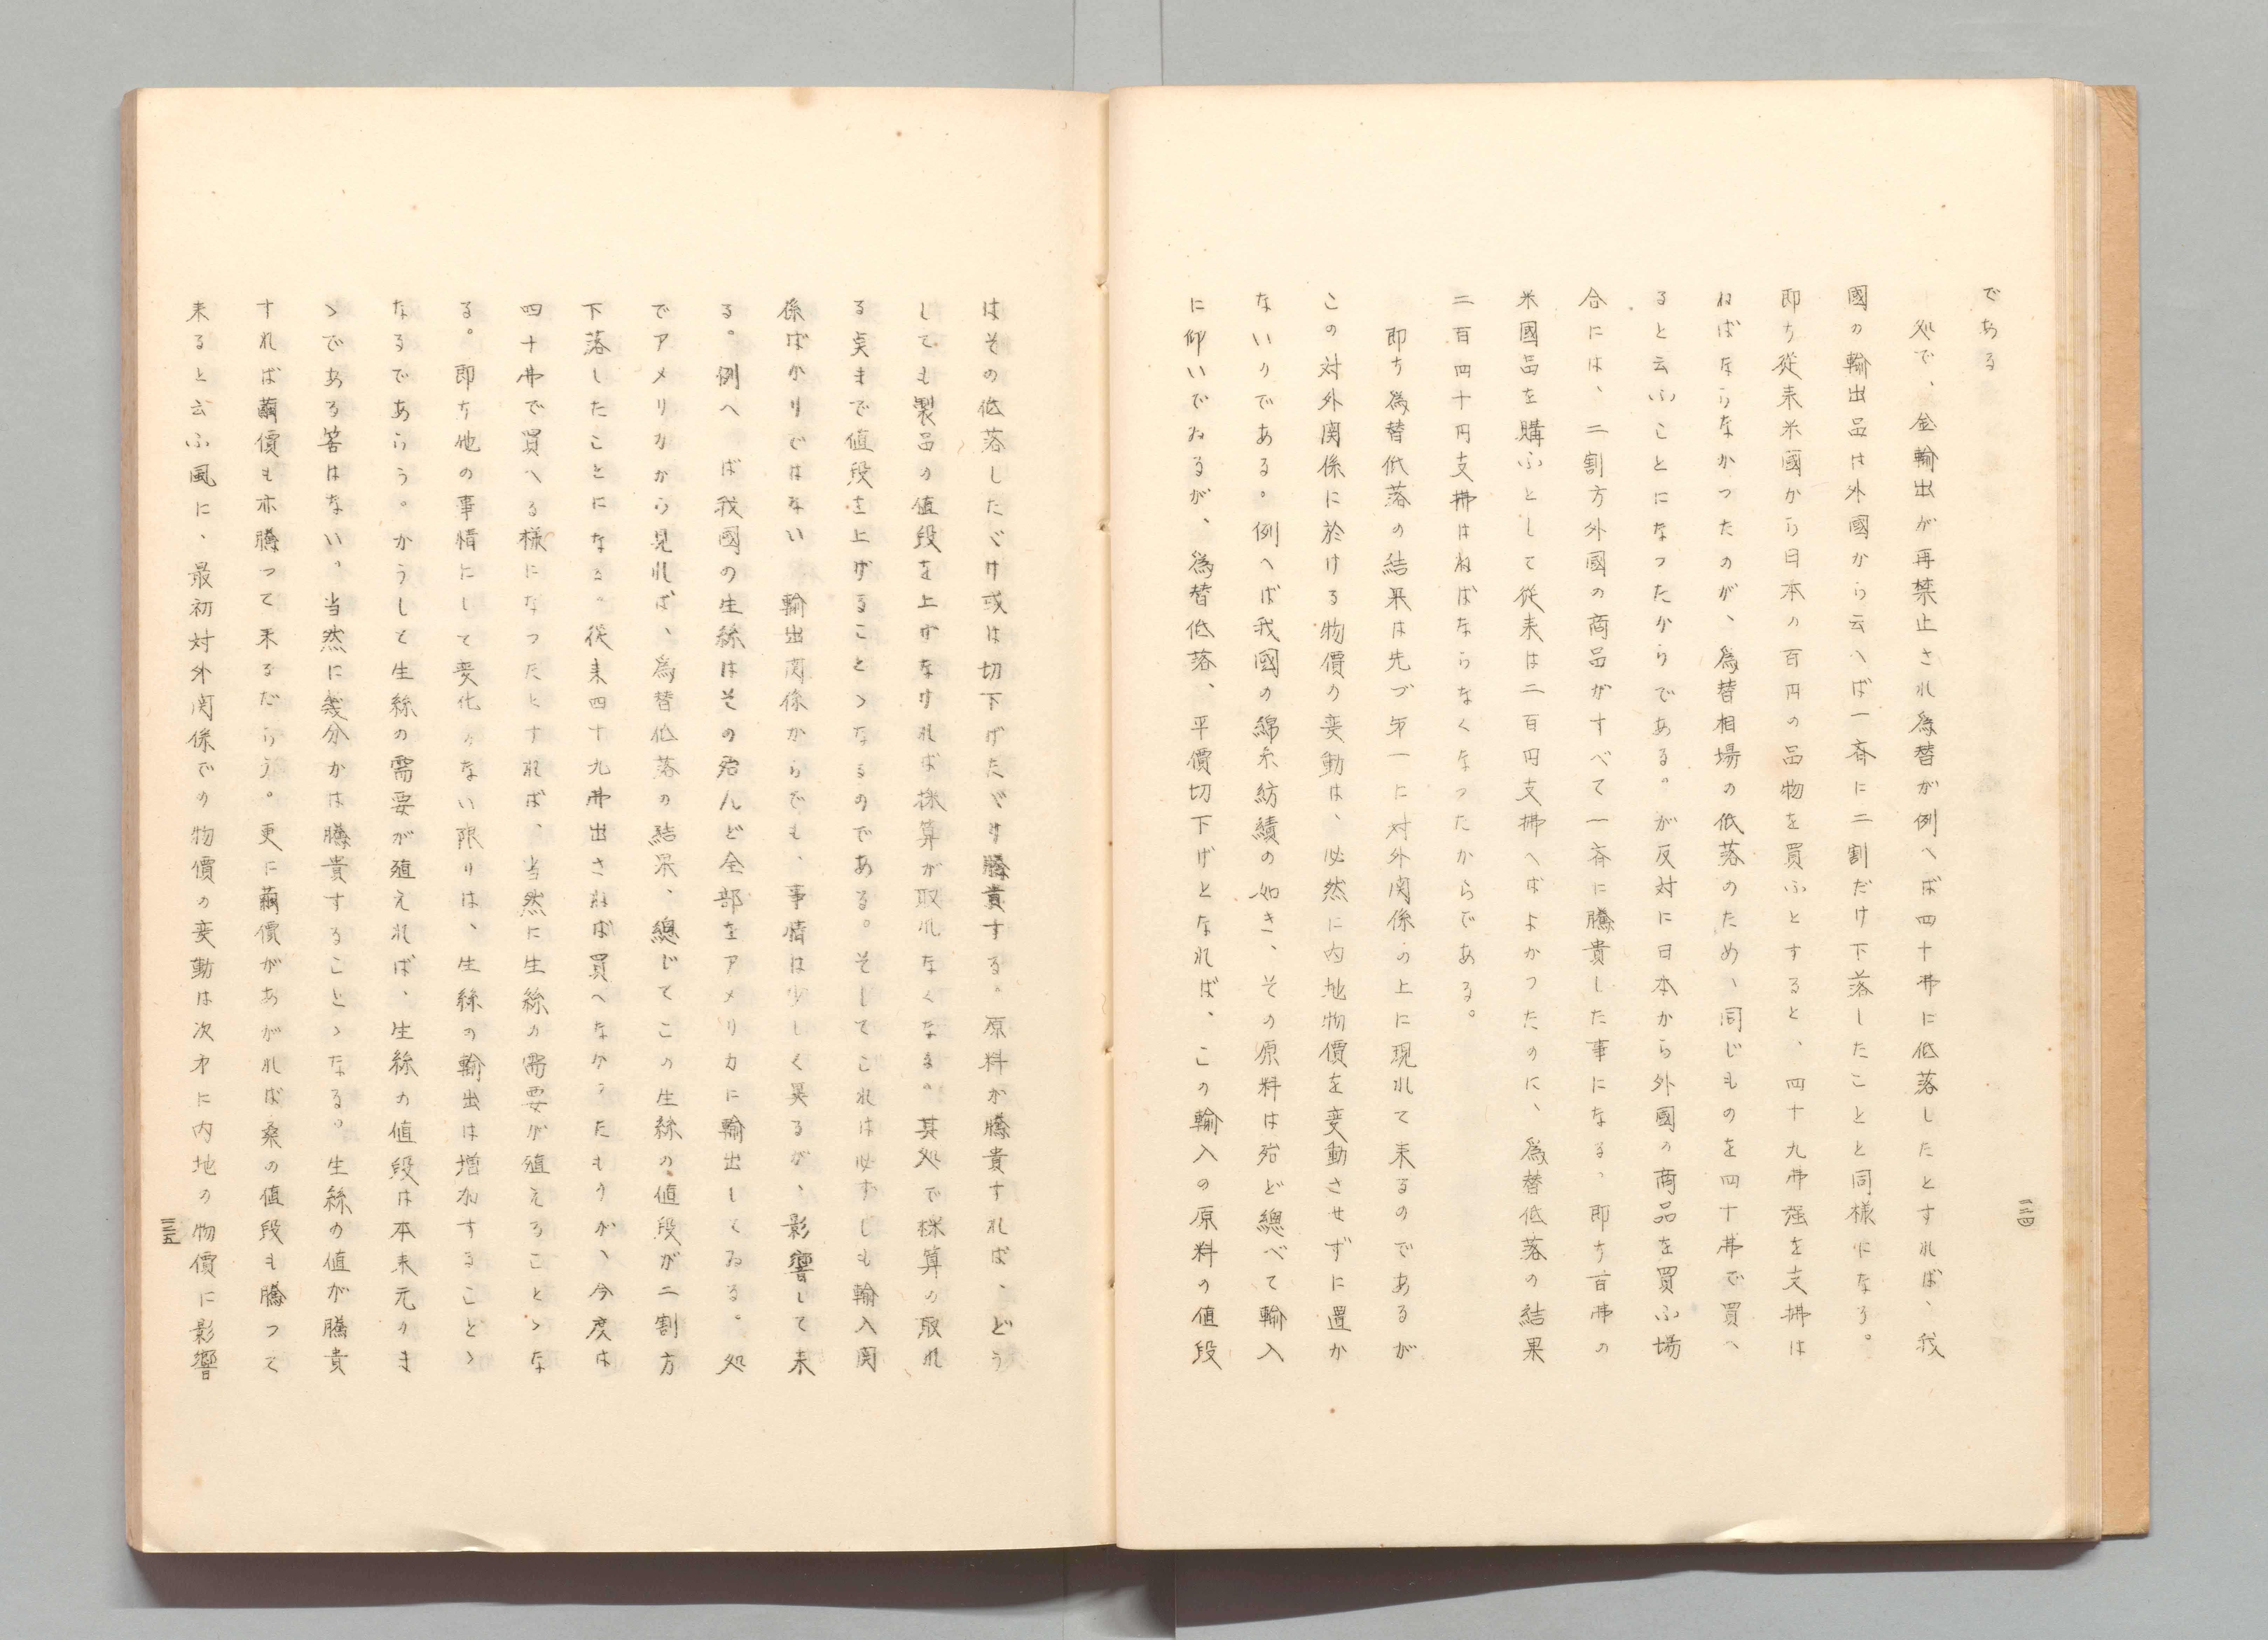 である
処で、金輸出が再禁止され為替が例へば四十弗に低落したとすれば、我
國の輸出品は外國から云へば一斉に二割だけ下落したことと同様になる。
即ち從来米國から日本の百円の品物を買ふとすると、四十九弗強を支拂は
ねばならなかつたのが、為替相場の低落のため、同じものを四十弗で買へ
ると云ふことになつたからである。が反対に日本から外國の商品を買ふ場
合には、二割方外國の商品がすべて一斉に騰貴した事になる。即ち百弗の
米國品を購ふとして從来は二百円支拂へばよかつたのに、為替低落の結果
二百四十円支拂はねばならなくなつたからである。
即ち為替低落の結果は先づ第一に対外関係の上に現れて来るのであるが
この対外関係に於ける物價の変動は、必然に内地物價を変動させずに置か
ないのである。例へば我國の綿糸紡績の如き、その原料は殆ど總べて輸入
に仰いでゐるが、為替低落、平價切下げとなれば、この輸入の原料の値段
二二四
はその低落したゞけ或は切下げたゞけ騰貴する。原料が騰貴すれば、どう
しても製品の値段を上げなければ採算が取れなくなる。其処で採算の取れ
る点まで値段を上げることゝなるのである。そしてこれは必ずしも輸入関
係ばかりではない 輸出関係からでも、事情は少しく異るが、影響して来
る。例へ ば我國の生絲はその殆んど全部をアメリカに輸出してゐる。処
でアメリカから見れば、為替低落の結果、總じてこの生絲の値段が二割方
下落したことになる。從来四十九弗出さねば買へなかつたものが、今度は
四十弗で買へる様になつたとすれば、当然に生絲の需要が殖えることゝな
る。即ち他の事情にして変化のない限りは、生絲の輸出は増加することゝ
なるであらう。かうして生絲の需要が殖えれば、生絲の値段は本来元のま
ゝである筈はない。当然に幾分かは騰貴することゝなる。生絲の値が騰貴
すれば繭價も亦騰つて来るだらう。更に繭價があがれば桑の値段も騰つて
来ると云ふ風に、最初対外関係での物價の変動は次第に内地の物價に影響
二二五